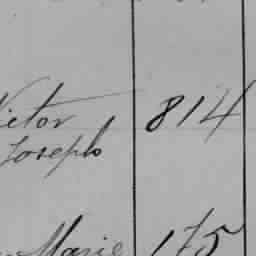 Victor 814
Joseph
Marie 175